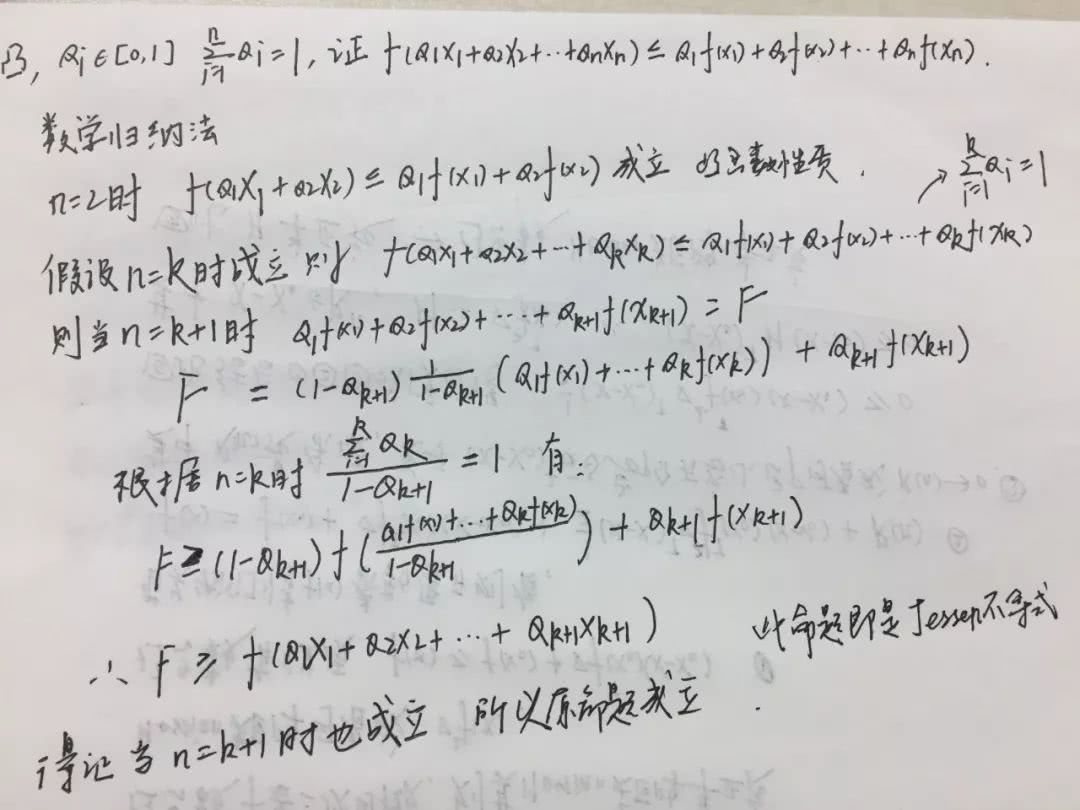 凸, Q_i∈[0,1] \sum_{i=1}^{n} Q_i=1, 证 f(Q_1x_1+Q_2x_2+…+Q_nx_n) ≤ Q_1f(x_1)+Q_2f(x_2)+…+Q_nf(x_n).
数学归纳法
n=2时 f(Q_1x_1+Q_2x_2) ≤ Q_1f(x_1)+Q_2f(x_2) 成立 凸函数性质.
↗ \sum_{i=1}^{k} Q_i=1
假设n=k时成立 则 f(Q_1x_1+Q_2x_2+…+Q_kx_k) ≤ Q_1f(x_1)+Q_2f(x_2)+…+Q_kf(x_k)
则当n=k+1时 Q_1f(x_1)+Q_2f(x_2)+…+Q_{k+1}f(x_{k+1}) = F
F = (1-Q_{k+1}) \frac{1}{1-Q_{k+1}} (Q_1f(x_1)+…+Q_kf(x_k)) + Q_{k+1}f(x_{k+1})
根据n=k时 \frac{\sum_{i=1}^{k} Q_k}{1-Q_{k+1}} = 1 有:
F ≥ (1-Q_{k+1}) f(\frac{Q_1f(x_1)+…+Q_kf(x_k)}{1-Q_{k+1}}) + Q_{k+1}f(x_{k+1})
∴ F ≥ f(Q_1x_1+Q_2x_2+…+Q_{k+1}x_{k+1}) 此命题即是Jessen不等式
得证当n=k+1时也成立 所以原命题成立.